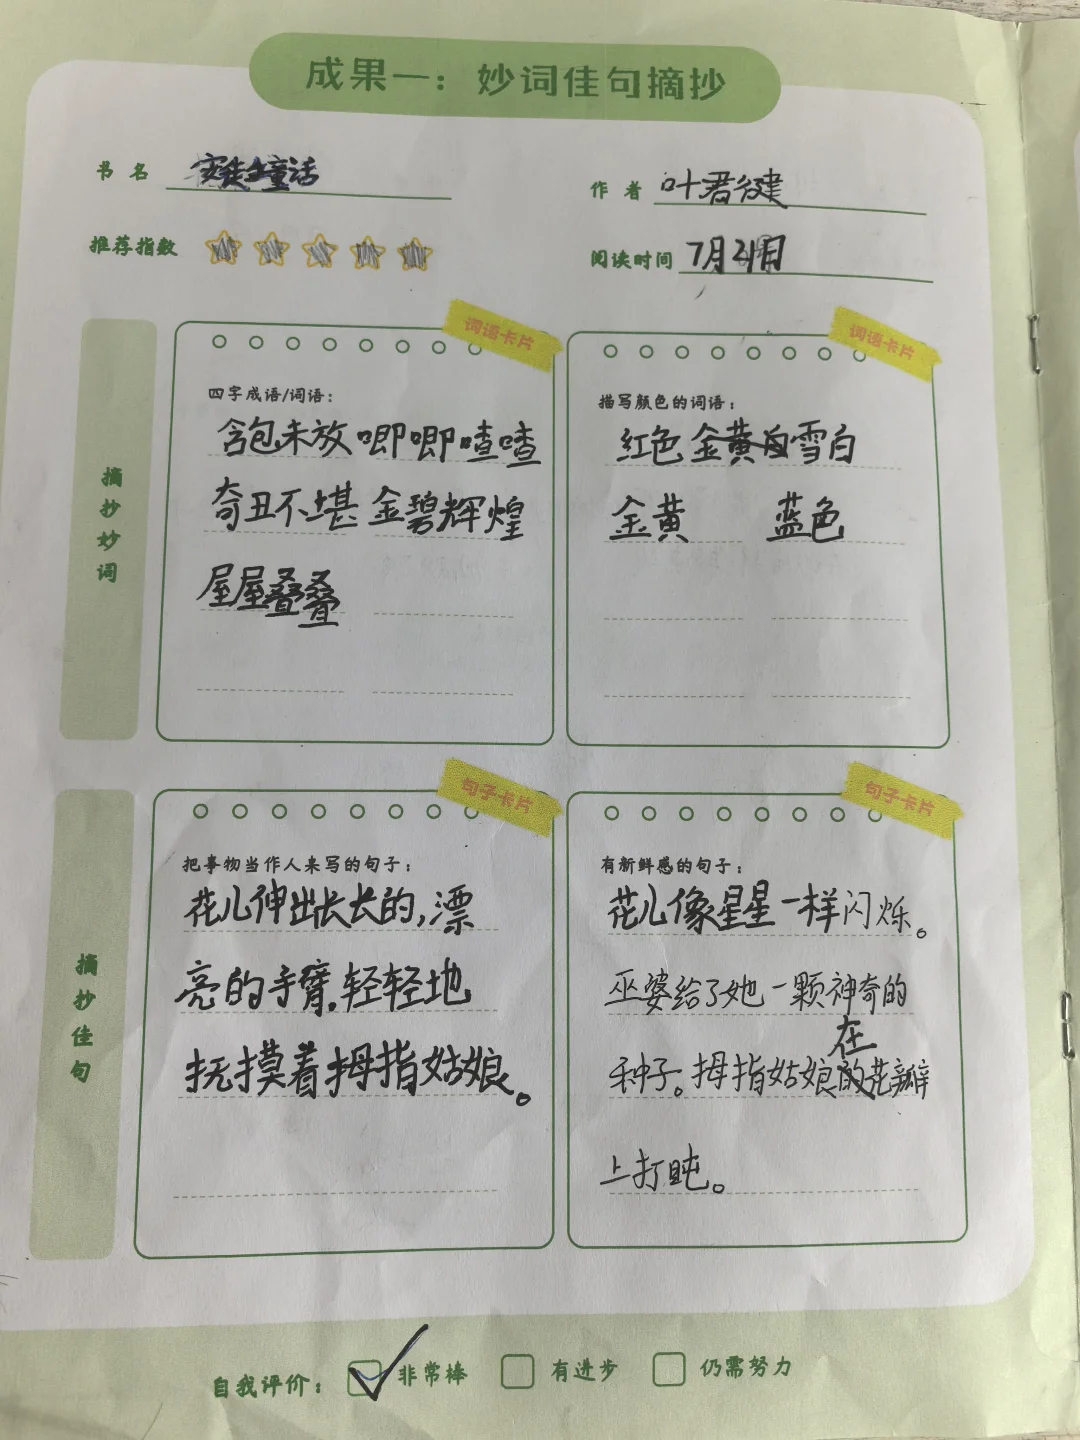 成果一：妙词佳句摘抄
书名 安徒生童话
作者 叶君健
推荐指数
阅读时间 7月21日
摘抄妙词
词语卡片
四字成语/词语：
含包未放 唧唧喳喳
奇丑不堪 金碧辉煌
屋屋叠叠
词语卡片
描写颜色的词语：
红色 雪白
金黄 蓝色
摘抄佳句
句子卡片
把事物当作人来写的句子：
花儿伸出长长的，漂
亮的手臂，轻轻地
抚摸着拇指姑娘。
句子卡片
有新鲜感的句子：
花儿像星星一样闪烁。
巫婆给了她一颗神奇的
种子。拇指姑娘在花瓣
上打盹。
自我评价： 非常棒 有进步 仍需努力